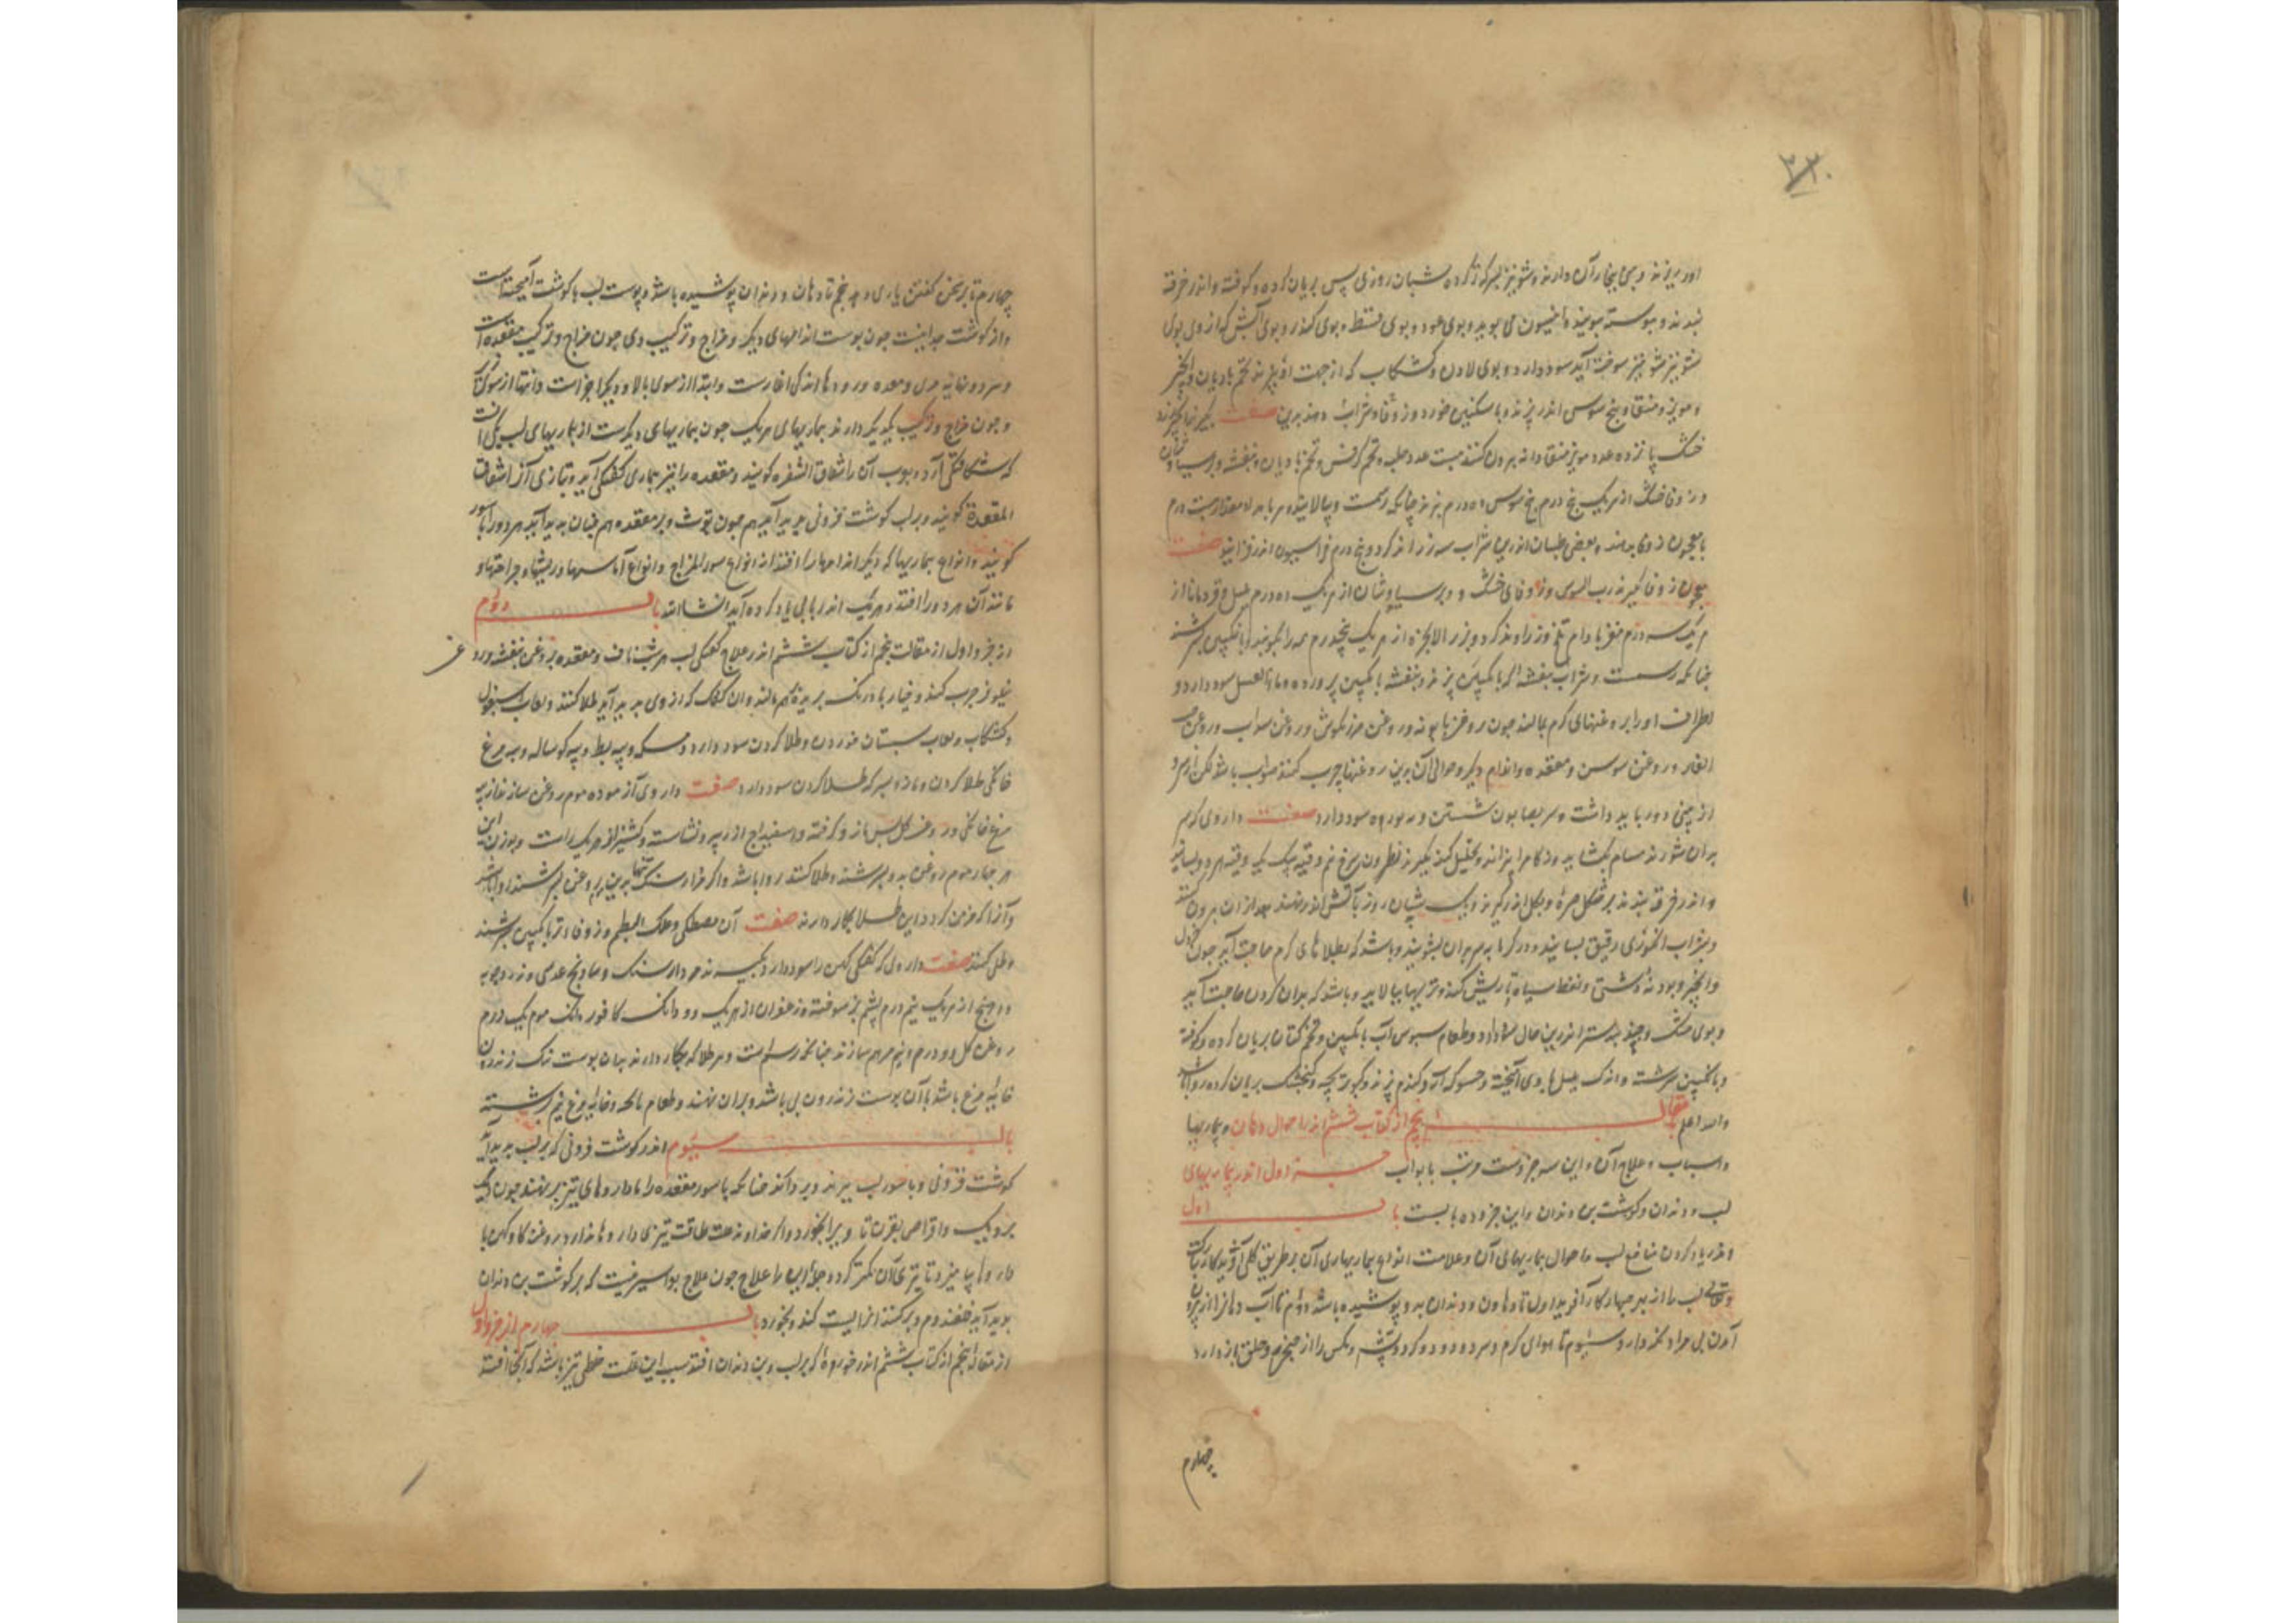 ۳۳۰
اور بریزند و بینی بخار آن دارند و شونیز بسرکه تر کرده شبان روزی پس بریان کرده و کوفته و اندر خرقه
بندند و پیوسته میبویند و انیسون می بویند و بوی عود و بوی قسط و بوی کندر و بوی آتش که از وی بوی
شونیز سوخته آید سود دارد و بوی لادن و کشکاب که از جهت او پزند تخم بادیان و انجیر
و مویز منقا و بیخ سوس اندر پزند و با سکنبین خورد و زوفا و شراب دهند بدین صفت بگیرند انجیر
خشک پانزده عدد مویز منقا دانه بیرون کنند بیست عدد حلبه و تخم کرفس و تخم بادیان و بنفشه و پرسیاوشان
و زوفا خشک از هر یک پنج درم بیخ سوس ده درم بپزند چنانکه رسمست و بپالایند و هر بامداد مقدار بیست درم
با معجون زوفا بدهند و بعضی طبیبان اندرین شراب سه زراوند کرد و پنج درم فراسیون اندر فزایند صفت
معجون زوفا بگیرند رب السوس و زوفای خشک و پرسیاوشان از هر یک ده درم
هر یک سه درم مغز بادام تلخ و زراوند کرد و بزر الانجره از هر یک پنجدرم همه را بکوبند و بانکبین بسرشند
چنانکه رسمست و شراب بنفشه اگر بانکبین پزند و بنفشه بانکبین پرورده و ماء العسل سود دارد و
اطراف او را بروغنهای گرم بمالند چون روغن بابونه و روغن مرزنکوش و روغن سداب و روغن
الغار و روغن سوسن و مقعده و اندام دیگر و حوالی آن بدین روغنها چرب کنند صواب باشد لکن از سر و
از بینی دور باید داشت و سر بصابون شستن و بوره سود دارد صفت داروی که سر
بدان شورند مسام بکشاید و زکام را بپزاند و تحلیل کند بگیرند نطرون سرخ نیم وقیه نمک یک وقیه هر دو بسایند
و اندر خرقه بندند بر شکل صره و بگل اندر گیرند و یک شبان روز بآتش اندر نهند بعد از آن بیرون کنند
و بشراب انگوری رقیق بسایند و در گرمابه سر بدان بشویند و باشد که بطلاهای گرم حاجت آید چون خردل
و انجیر و پودنه دشتی و نفط سیاه تا ریش کند و تریها بپالاید و باشد که بدان کردن حاجت آید
و بوی مشک و جندبیدستر اندرین حال سود دارد و طعام سبوس آب بانکبین و تخم کتان بریان کرده و کوفته
و بانکبین سرشته و اندک پلپل با وی آمیخته و حسو که از آرد گندم پزند و کبوتر بچه و کنجشک بریان کرده روا باشد
والله اعلم مقالت پنجم از کتاب ششم اندر احوال دهان و بیماریها
و اسباب و علاج آن و این سه جزوست مرتب بابواب جزو اول اندر بیماریهای
لب و دندان و گوشت بن دندان و این جزو ده بابست باب اول
اندر یاد کردن منافع لب و احوال بیماریهای آن و علامت انواع بیماریهای آن بر طریق کلی آفریدگار تبارک
و تعالی لب را از بهر چهار کار آفرید اول تا دهان و دندان بدو پوشیده باشد دوم تا آب دهان از بیرون
آمدن بی مراد نگه دارد سیوم تا هوای گرم و سرد و دود و گرد و پشه و مگس را از حنجره و حلق باز دارد
چهارم
چهارم تا بر سخن گفتن یاری دهد پنجم تا دهان و دندان پوشیده باشد و پوست لب با گوشت آمیخته است
و از گوشت جدا نیست چون پوست اندامهای دیگر و مزاج و ترکیب وی چون مزاج و ترکیب مقعده است
و هر دو نهایت مری و معده و رودها اند لکن آغازست و ابتدا از سوی بالا و دیگر آخرست و انتها از سوی
و چون مزاج و ترکیب یکدیگر دارند بیماریهای هر یک چون بیماریهای دیگرست از بیماریهای لب یکی آنست
که شکافتگی آرد و بپوست آن را شقاق الشفه گویند و مقعده را نیز بیماری کفتگی آید و بتازی آنرا شقاق
المقعدة گویند و بر لب گوشت فزونی پدید آید هم چون توث و بر مقعده هم چنان پدید آید هر دو را باسور
گویند و انواع بیماریها که دیگر اندامها را افتد از انواع سوء المزاج و انواع آماسها و ریشها و جراحتها و
مانند آن هر دو را افتد و هر یک اندر بابی یاد کرده آید انشا الله باب دوم
از جزو اول از مقالت پنجم از کتاب ششم اندر علاج کفتگی لب هر شب ناف و مقعده بروغن بنفشه و روغن
نیلوفر چرب کنند و خیار بادرنگ بریده بهم بمالند و آن کفک که از وی پدید آید طلا کنند و لعاب اسبغول
و کشکاب و لعاب سپستان خوردن و طلا کردن سود دارد و مسکه و پیه بط و پیه گوساله و پیه مرغ
خانگی طلا کردن و مازو بسرکه طلا کردن سود دارد صفت داروی آزموده موم روغن سازند از پیه
مرغ خانگی و روغن گل پس مازو کوفته و اسفیداج ارزیز و نشاسته و کشنیز از هر یک راست و بوزن این
هر چهار موم روغن بدو بسرشند و طلا کنند روا باشد و اگر مردارسنگ تنها بدین پیه روغن بسرشند روا باشد
و آنرا که مزمن گردد این طلا بکار دارند صفت آن مصطکی و علک البطم و زوفا تر بانکبین بسرشند
و طلی کنند صفت داروی که کفتگی کهن را سود دارد بگیرند مردارسنگ و ساذنج عدسی و زردچوبه
از هر یک نیم درم پشم بز سوخته و زعفران از هر یک دو دانگ کافور دانگ موم یک درم
روغن گل دو درم و نیم مرهم سازند چنانکه رسم است و هر طلا که بکار دارند بدان پوست تنک زندرون
خایه مرغ باشد یا آن پوست زندرون پی باشد بران نهند و طعام پاچه و خایه مرغ نیم برشته
باب سیوم اندر گوشت فزونی که بر لب پدید آید
گوشت فزونی و باسور لب ببرند و برداکنند چنانکه باسور مقعده را یا داروهای تیز بر نهند چون دیک
بردیک و اقراص بقراتا ویرا بخورد و اگر خداوند علت طاقت تیزی داروها ندارد روغن گاو کهن با
داروها بیامیزند تا تیزی آن کمتر گردد و جمله این را علاج چون علاج بواسیرست که بر گوشت بن دندان
پدید آید قلقند دم بر کنند آنرا پست کند و بخورد باب چهارم از جزو اول
از مقالت پنجم از کتاب ششم اندر خوره که بر لب و بن دندان افتد سبب این علت خلطی تیز باشد که آنجا افتد